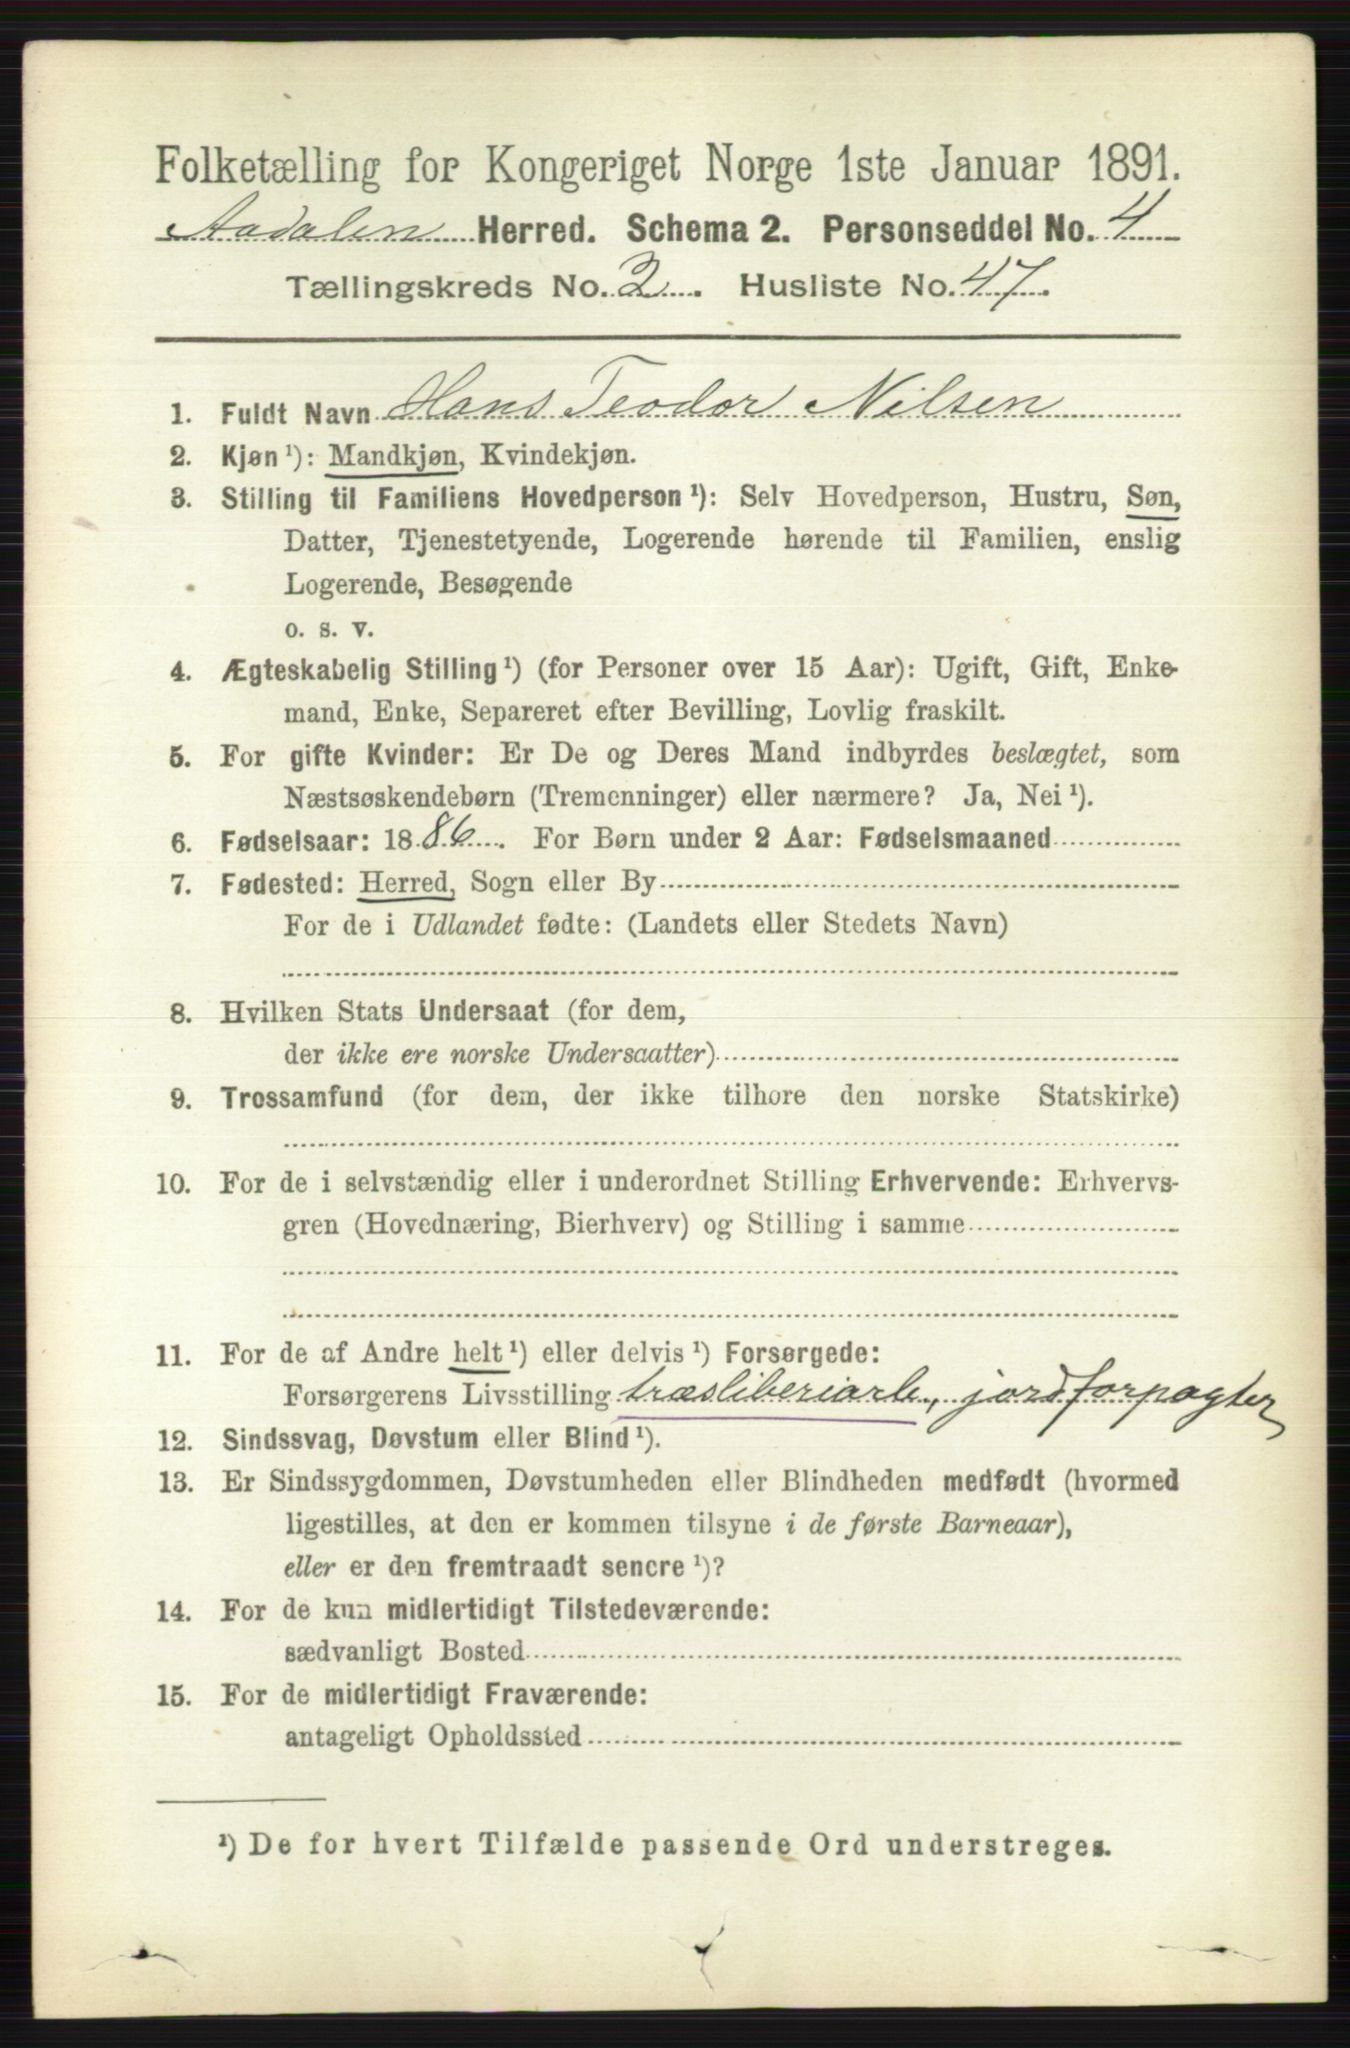 Folketælling for Kongeriget Norge 1ste Januar 1891.
Aadalen Herred. Schema 2. Personseddel No. 4
Tællingskreds No. 2. Husliste No. 47.
1. Fuldt Navn Hans Teodor Nilsen
2. Kjøn¹): Mandkjøn, Kvindekjøn.
3. Stilling til Familiens Hovedperson¹): Selv Hovedperson, Hustru, Søn,
Datter, Tjenestetyende, Logerende hørende til Familien, enslig
Logerende, Besøgende
o. s. v.
4. Ægteskabelig Stilling¹) (for Personer over 15 Aar): Ugift, Gift, Enke-
mand, Enke, Separeret efter Bevilling, Lovlig fraskilt.
5. For gifte Kvinder: Er De og Deres Mand indbyrdes beslægtet, som
Næstsøskendebørn (Tremenninger) eller nærmere? Ja, Nei¹).
6. Fødselsaar: 1886. For Børn under 2 Aar: Fødselsmaaned
7. Fødested: Herred, Sogn eller By
For de i Udlandet fødte: (Landets eller Stedets Navn)
8. Hvilken Stats Undersaat (for dem,
der ikke ere norske Undersaatter)
9. Trossamfund (for dem, der ikke tilhøre den norske Statskirke)
10. For de i selvstændig eller i underordnet Stilling Erhvervende: Erhvervs-
gren (Hovednæring, Bierhverv) og Stilling i samme
11. For de af Andre helt¹) eller delvis¹) Forsørgede:
Forsørgerens Livsstilling træsliberiarb, jordforpagter
12. Sindssvag, Døvstum eller Blind¹).
13. Er Sindssygdommen, Døvstumheden eller Blindheden medfødt (hvormed
ligestilles, at den er kommen tilsyne i de første Barneaar),
eller er den fremtraadt senere¹)?
14. For de kun midlertidigt Tilstedeværende:
sædvanligt Bosted
15. For de midlertidigt Fraværende:
antageligt Opholdssted
¹) De for hvert Tilfælde passende Ord understreges.